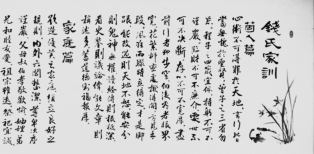 錢氏家訓
個人篇
心術不可得罪於天地言行皆
當無愧於聖賢曾子之三省勿
忘程子之四箴宜佩持躬不可不
謹嚴臨財不可不廉介處事不
可不決斷存心不可不寬厚盡
前行者地步窄向後看者眼界
寬花繁柳密處撥得開方見手
段風狂雨驟時立得定才是腳
跟能改過則天地不怒能安分
則鬼神無權讀經傳則根柢深
看史鑒則議論偉能文章則
稱述多蓄道德則福報厚
家庭篇
欲造優美之家庭須立良好之
規則內外六閭整潔尊卑次序
謹嚴父母伯叔孝敬歡愉妯娌弟
兄和睦友愛祖宗雖遠祭祀宜誠